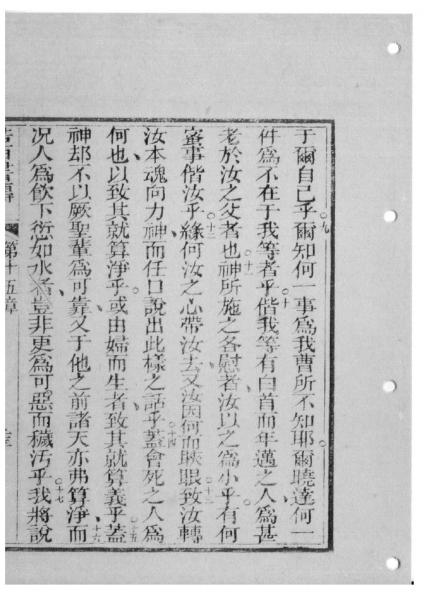 于爾自己乎○九爾知何一事為我曹所不知耶爾曉達何一
件為不在于我等者乎○十偕我等有白首而年邁之人為甚
老於汝之父者也○十一神所施之各慰者汝以之為小乎有何
密事偕汝乎○十二緣何汝之心帶汝去又汝因何而䀹眼○十三致汝轉
汝本魂向力神而任口說出此樣之話乎○十四蓋會死之人為
何也以致其就算淨乎或由婦而生者致其就算義乎○十五蓋
神却不以厥聖輩為可靠又于他之前諸天亦弗算淨○十六而
況人為飲下愆如水者豈非更為可惡而穢汚乎○十七我將說
第十五章